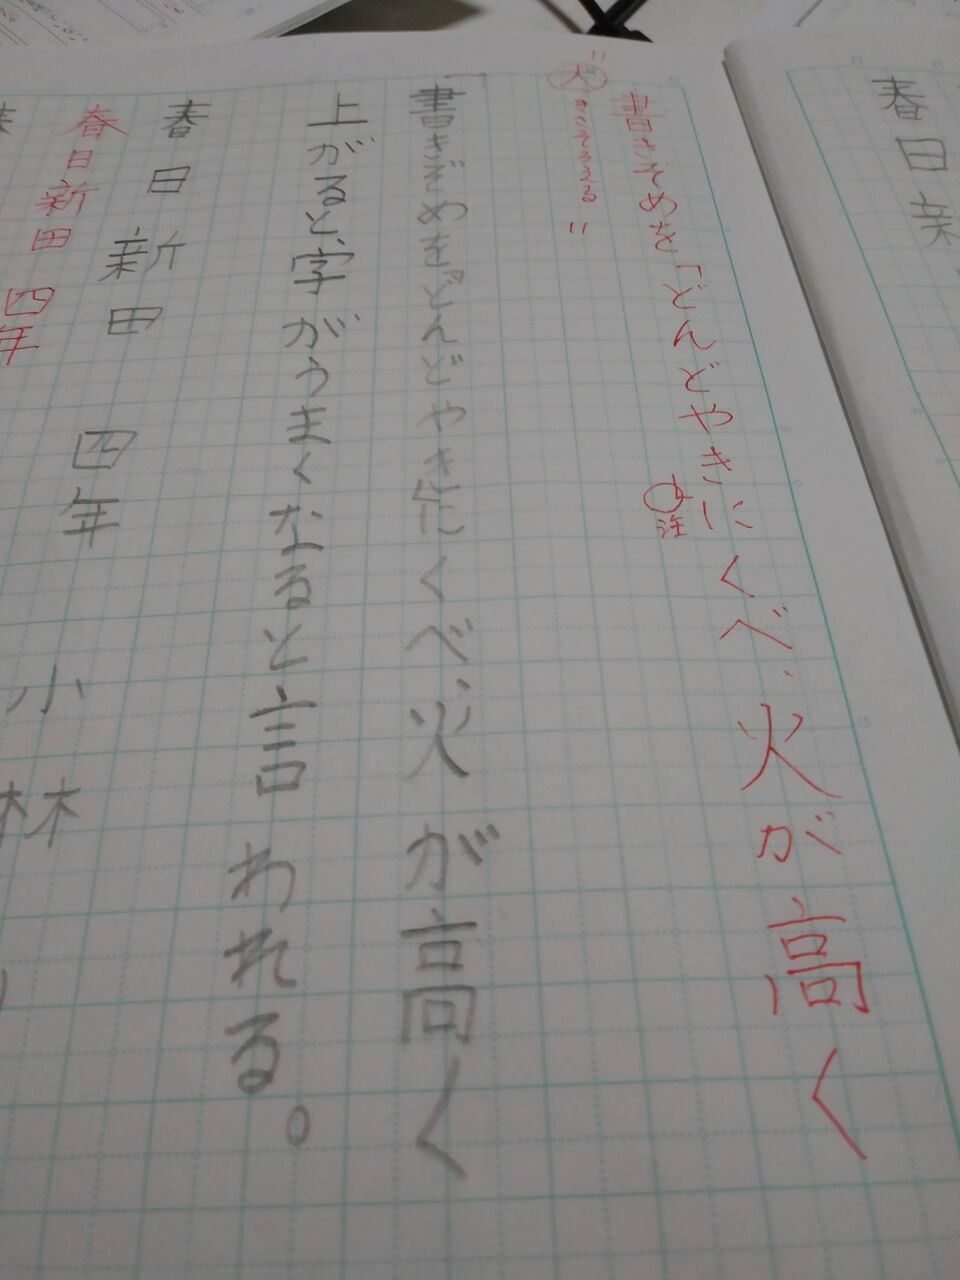 春日新
書きぞめを「どんどやきにくべ、火が高く
注
書きぞめを「どんどやきにくべ、火が高く
上がると字がうまくなると言われる。
春日新田 四年 小林
春日新田 四年